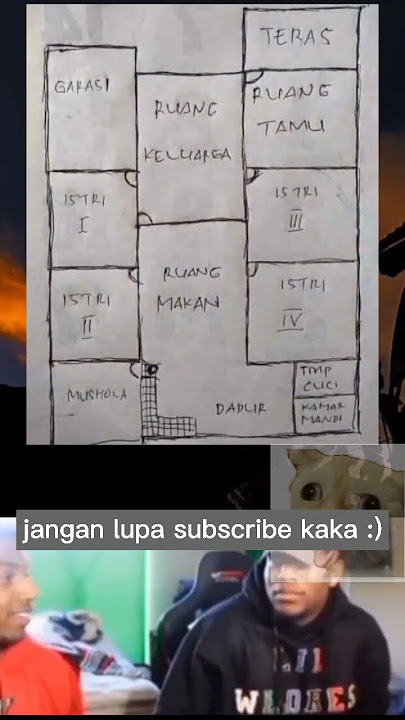 TERAS
GARASI
RUANG
KELUARGA
RUANG
TAMU
ISTRI
I
ISTRI
III
ISTRI
II
RUANG
MAKAN
ISTRI
IV
MUSHOLA
DAPUR
TMP
CUCI
KAMAR
MANDI
jangan lupa subscribe kaka :)